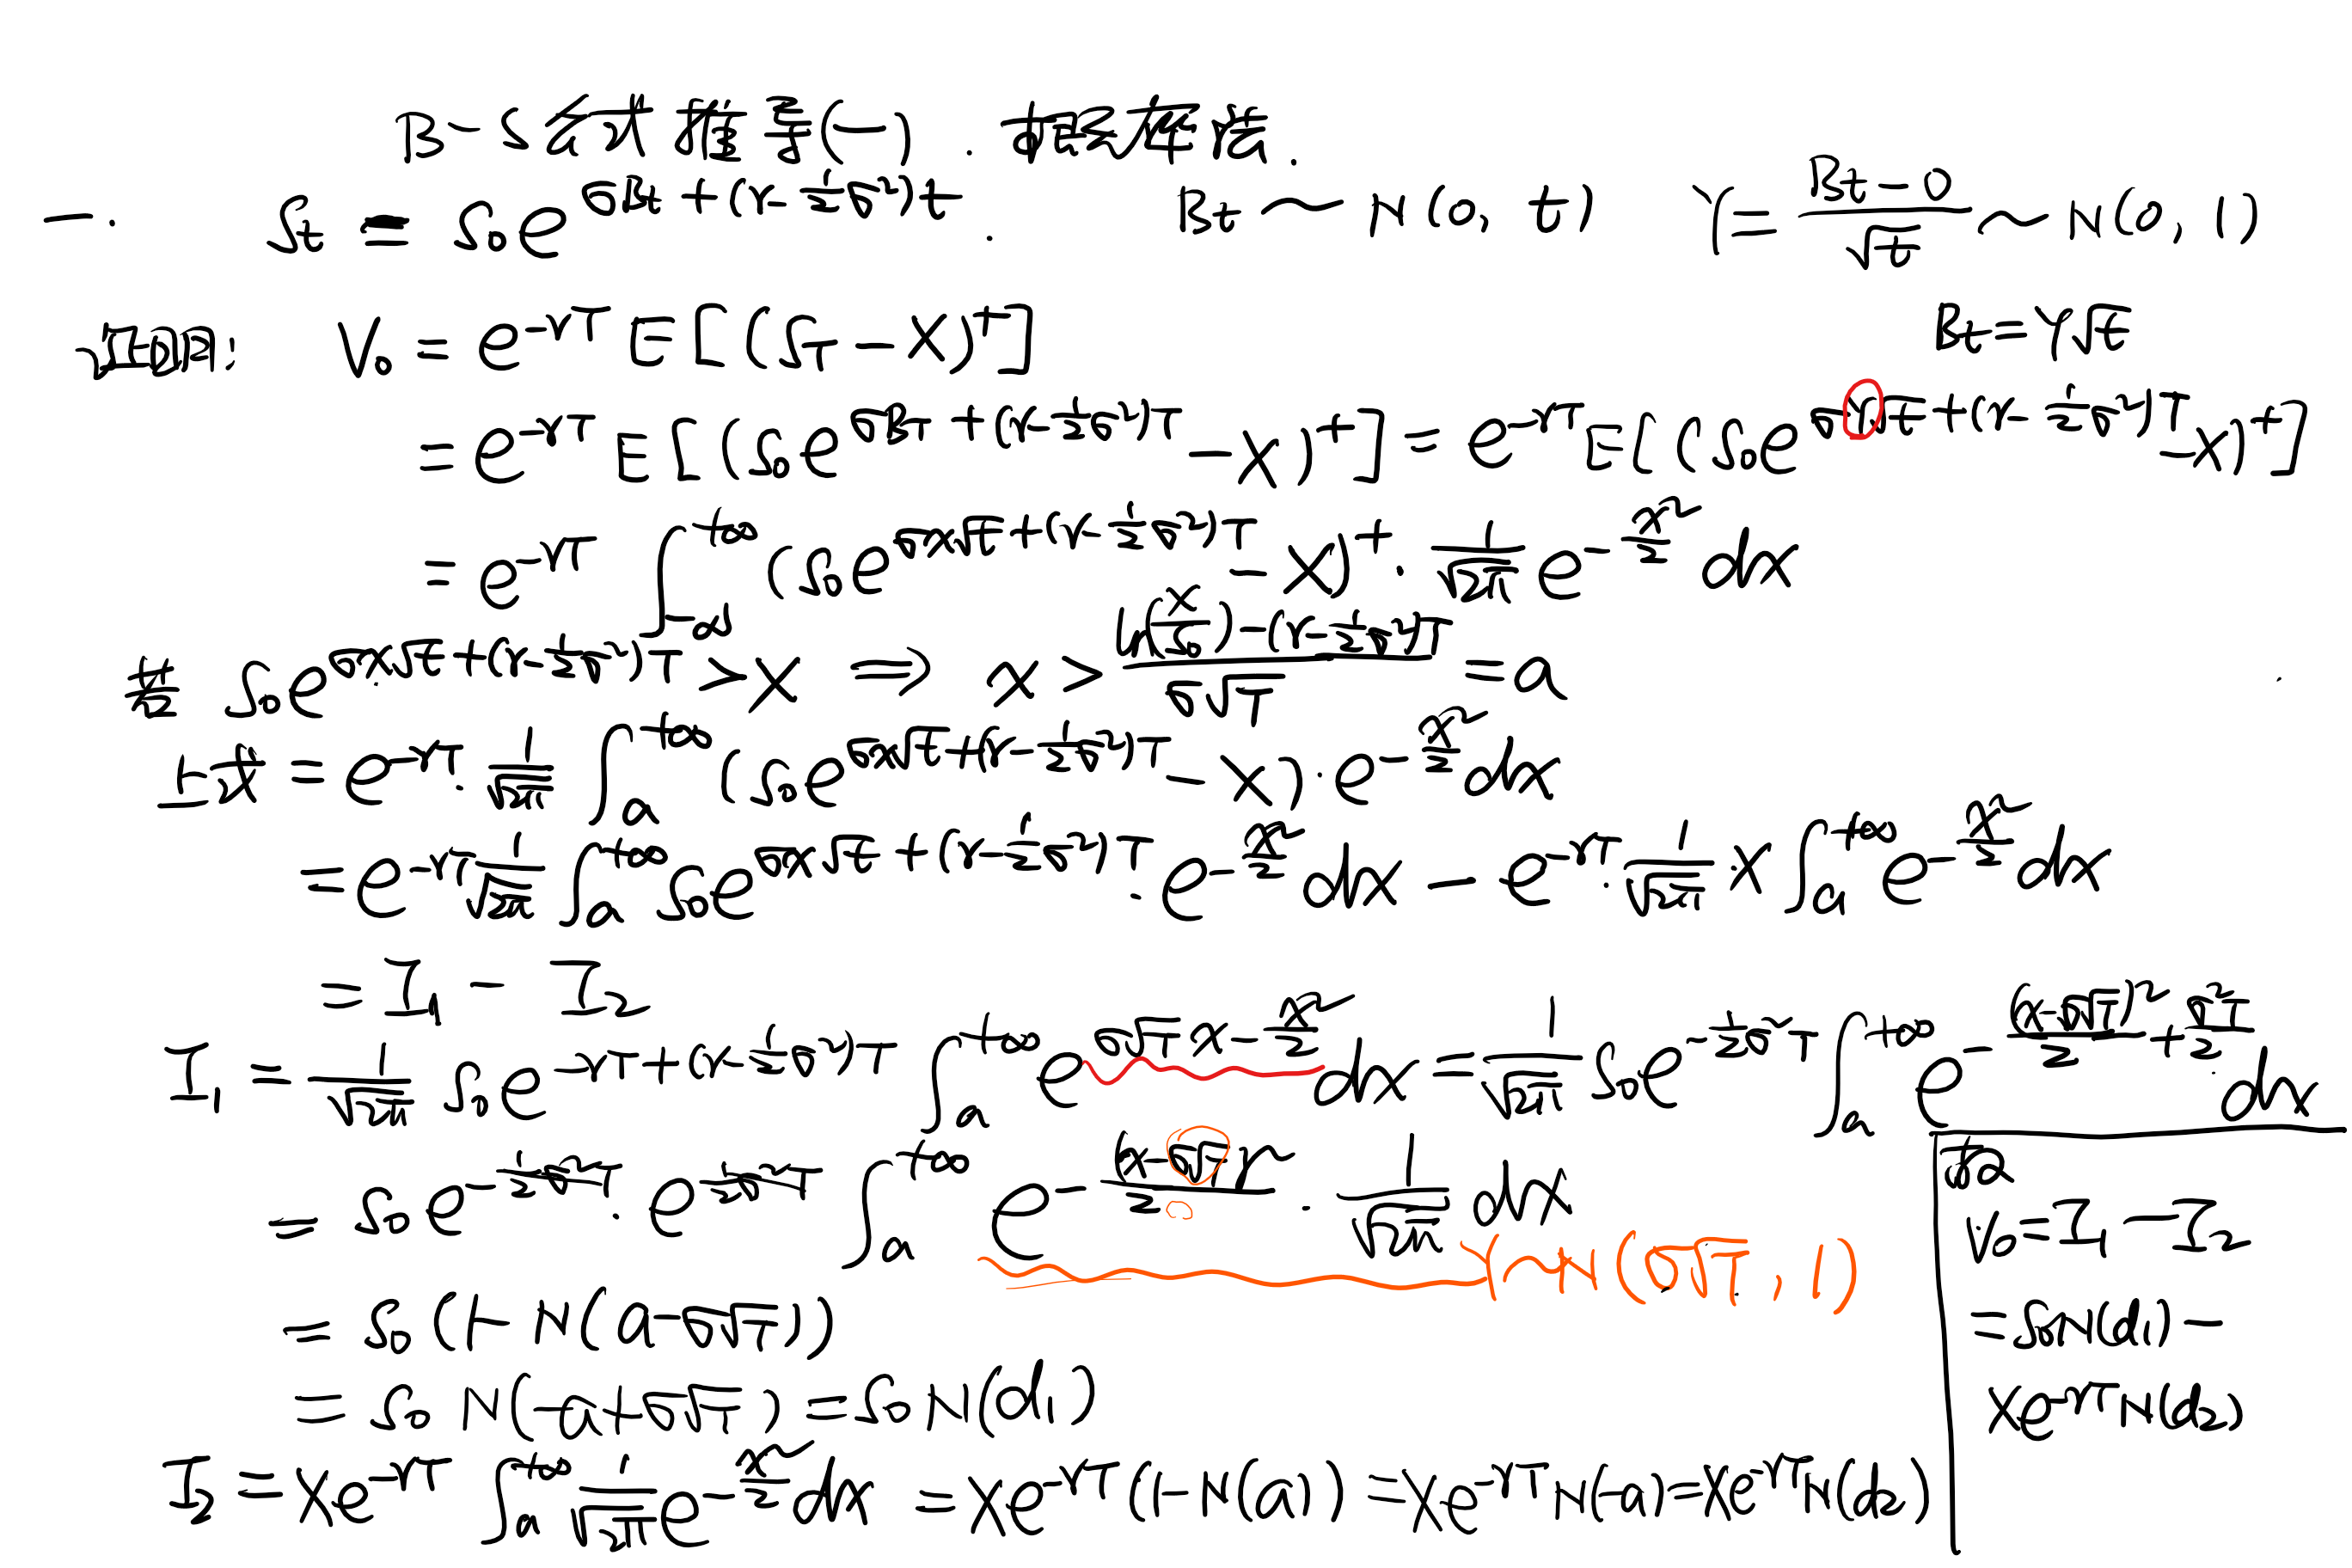 B-S公式推导(一). 概率法.
一. Sₜ = S₀e^{σBt+(r-½σ²)t}. Bt ~ N(0, t) Y = (Bt-0)/√t ~ N(0, 1)
证明: V₀ = e^{-rT} E[(S_T - X)⁺] Bt = Y√t
= e^{-rT} E[(S₀e^{σB_T+(r-½σ²)T} - X)⁺] = e^{-rT} E[(S₀e^{σY√t+(r-½σ²)T} - X)⁺]
= e^{-rT} ∫_{-∞}^{+∞} (S₀e^{σx√t+(r-½σ²)T} - X)⁺ · 1/√(2π) e^{-x²/2} dx
若 S₀e^{σx√t+(r-½σ²)T} > X ⇒ x > (ln(X/S₀)-(r-½σ²)T)/(σ√T) = a
上式 = e^{-rT} · 1/√(2π) ∫_a^{+∞} (S₀e^{σx√t+(r-½σ²)T} - X) · e^{-x²/2} dx
= e^{-rT} 1/√(2π) ∫_a^{+∞} S₀e^{σx√t+(r-½σ²)T} · e^{-x²/2} dx - e^{-rT} · 1/√(2π) X ∫_a^{+∞} e^{-x²/2} dx
= I₁ - I₂
I₁ = 1/√(2π) S₀e^{-rT+(r-½σ²)T} ∫_a^{+∞} e^{σ√T x - x²/2} dx = 1/√(2π) S₀e^{-½σ²T} ∫_a^{+∞} e^{-(x-σ√T)²/2 + σ²T/2} dx
= S₀e^{-½σ²T} · e^{½σ²T} ∫_a^{+∞} e^{-(x-σ√T)²/2} · 1/√(2π) dx
Y~N(σ√T, 1)
= S₀(1-N(a-σ√T))
= S₀ N(-a+σ√T) = S₀N(d₁)
I₂ = Xe^{-rT} ∫_a^{+∞} 1/√(2π) e^{-x²/2} dx = Xe^{-rT}(1-N(a)) = Xe^{-rT}N(-a) = Xe^{-rT}N(d₂)
V₀ = I₁ - I₂
= S₀N(d₁) -
Xe^{-rT}N(d₂)